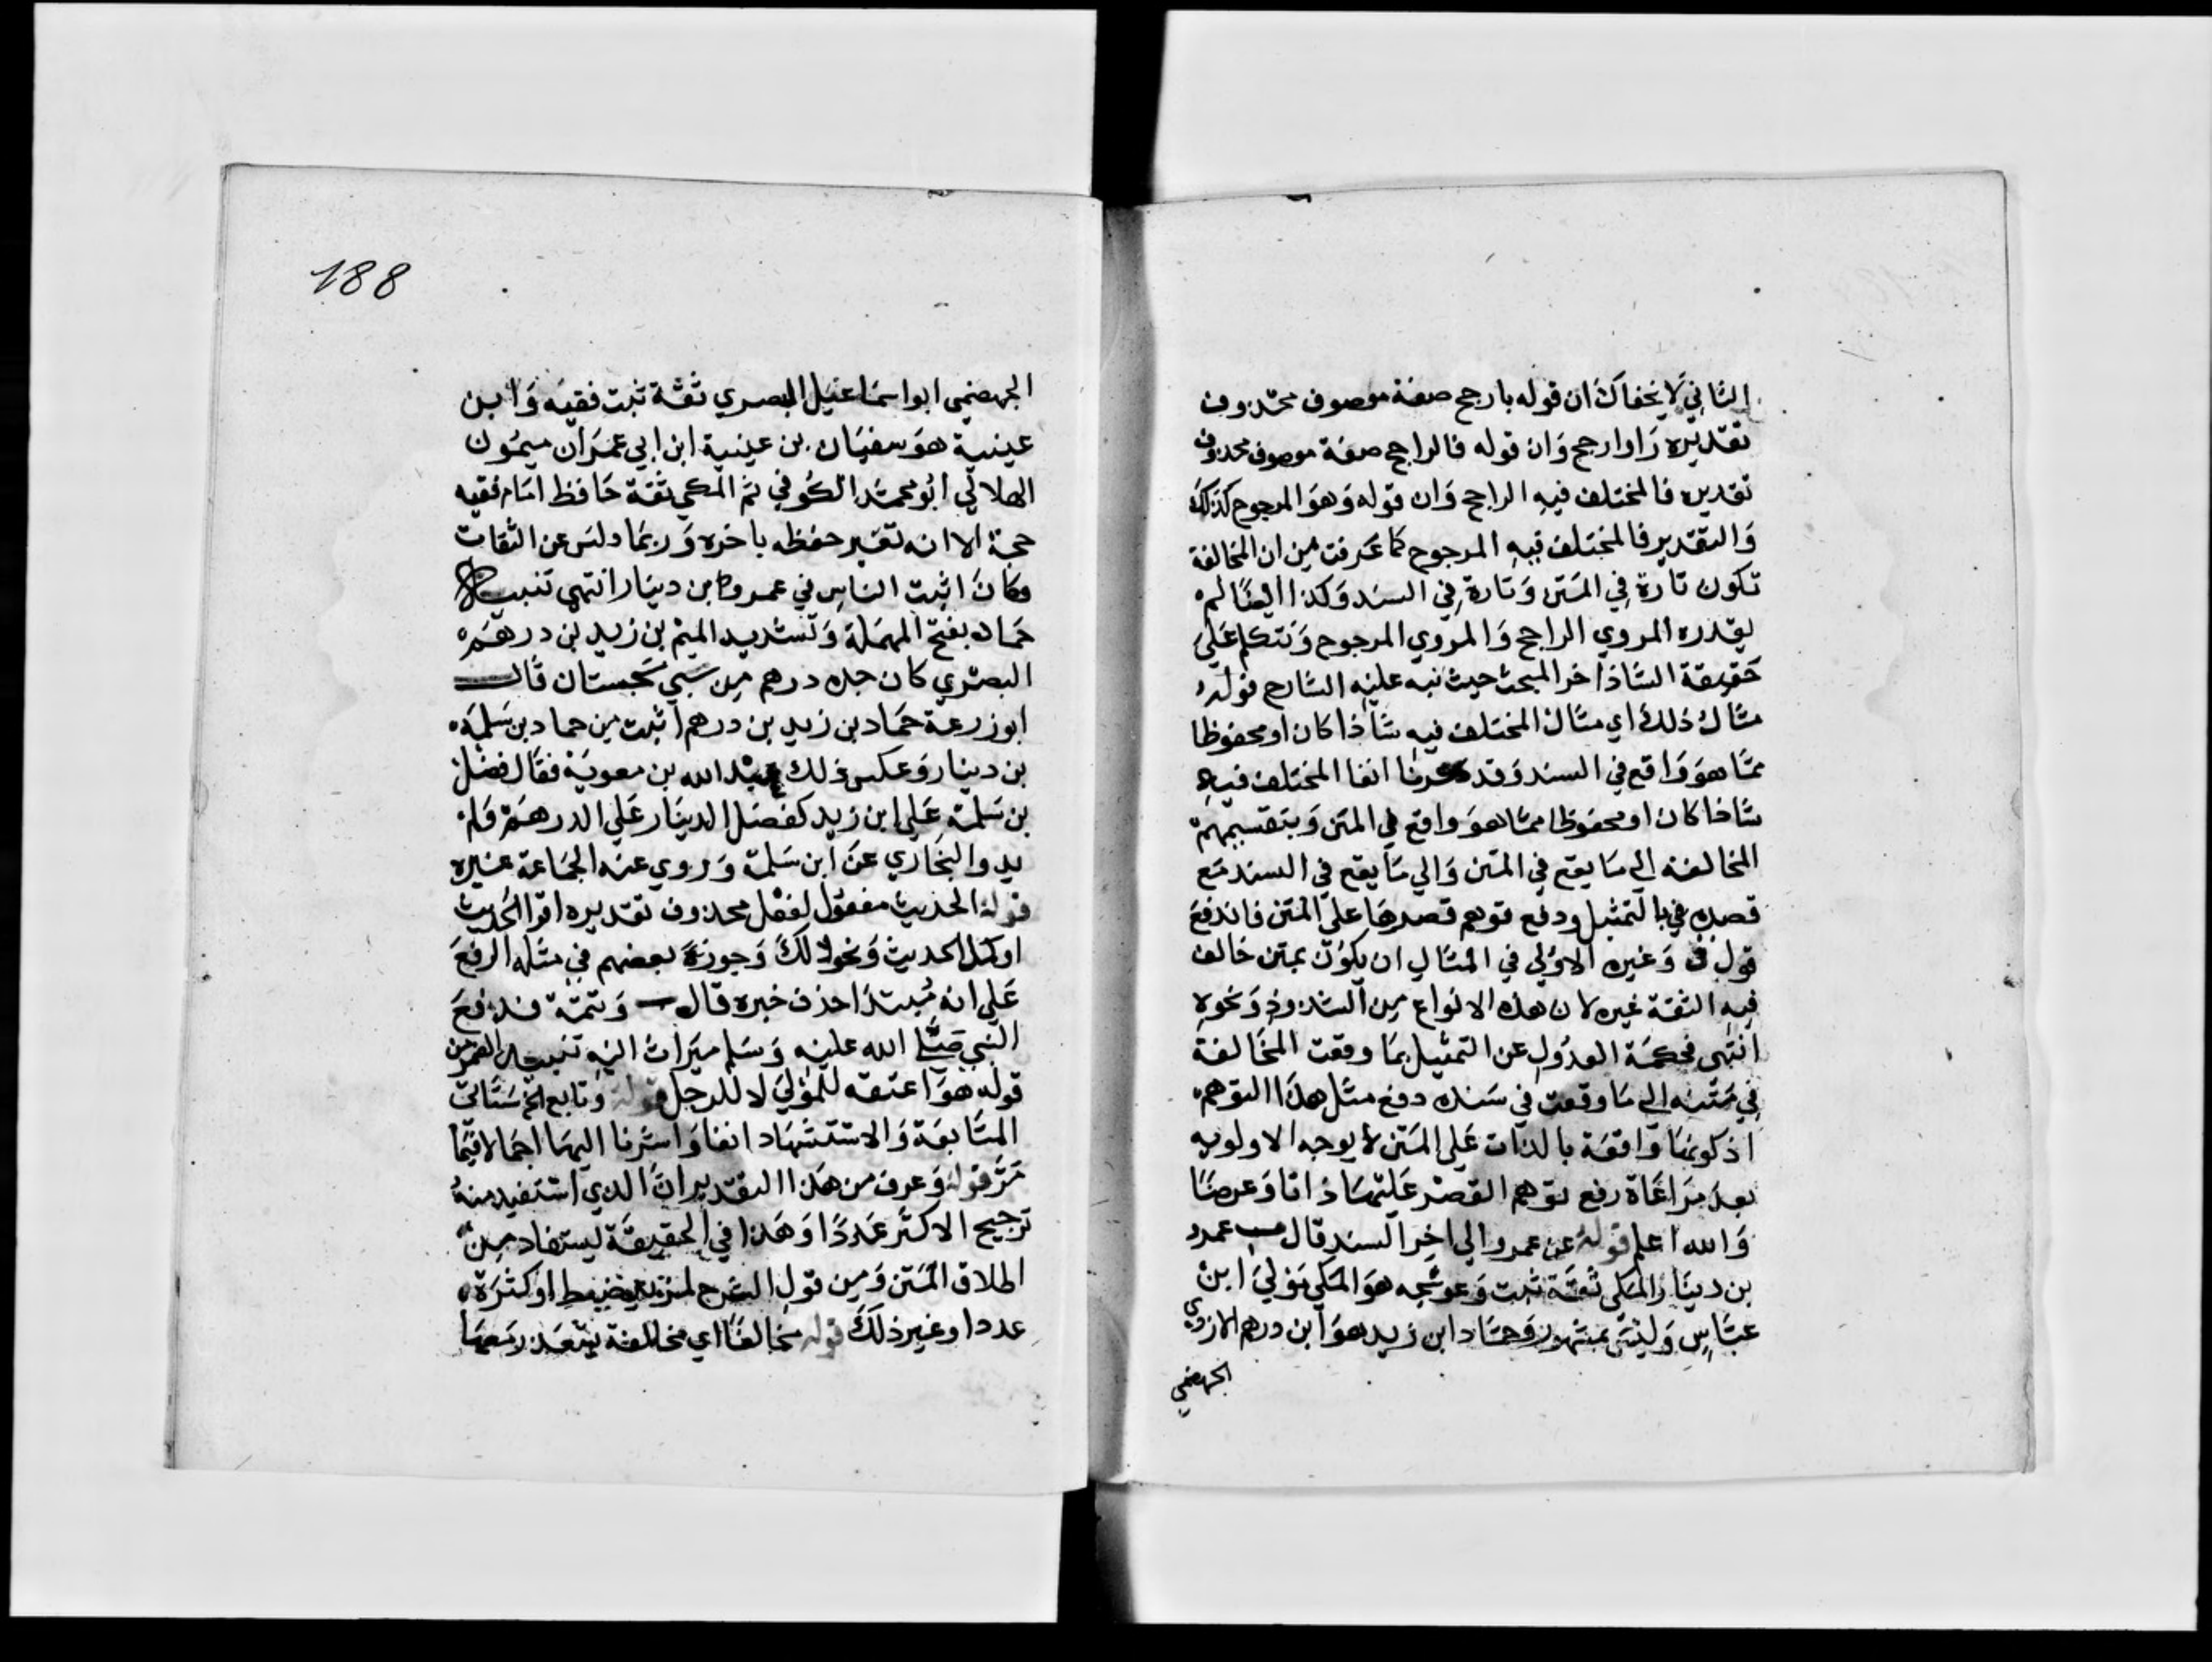 الثاني لا يخفاك ان قوله بارجح صفة موصوف محذوف
تقديره راو ارجح وان قوله فالراجح صفة موصوف محذوف
تقديره فالمختلف فيه الراجح وان قوله وهو المرجوح كذلك
والتقدير فالمختلف فيه المرجوح كما عرفت من ان المخالفة
تكون تارة في المتن وتارة في السند وكذا ايضا لم
يقدره المروي الراجح والمروي المرجوح ونتكلم على
حقيقة الشاذ اخر المبحث حيث نبه عليه الشارح قوله
مثال ذلك اي مثال المختلف فيه شاذا كان او محفوظا
مما هو واقع في السند وقد عرفنا انفا المختلف فيه
شاذا كان او محفوظا مما هو واقع في المتن وبتقسيمهم
المخالفة الى ما يقع في المتن والي ما يقع في السند مع
قصده في بالتمثيل ودفع توهم قصرها على المتن فاندفع
قول ق وغيره الاولي في المثال ان يكون بمتن خالف
فيه الثقة غيره لان هذه الانواع من الشذوذ ونحوه
انتهى فحكمة العدول عن التمثيل بما وقعت المخالفة
في متنه الي ما وقعت في سنده دفع مثل هذا التوهم
اذ كونها واقعة بالذات على المتن لا يوجه الاولويه
بعد مراعاة رفع توهم القصر عليهما ذاتا وعرضا
والله اعلم قوله عن عمرو الي اخر السند قال عمرو
بن دينار المكي ثقة ثبت وعوسجه هو المكي مولي ابن
عباس وليس بمشهور وحماد ابن زيد هو ابن درهم الازدي
الجهضمي
188
الجهضمي ابو اسماعيل البصري ثقة ثبت فقيه وابن
عيينية هو سفيان بن عيينية ابن ابي عمران ميمون
الهلالي ابو محمد الكوفي ثم المكي ثقة حافظ امام فقيه
حجة الا انه تغير حفظه باخره وربما دلس عن الثقات
وكان اثبت الناس في عمرو ابن دينار انتهى تنبيه
حماد بفتح المهملة وتشديد الميم بن زيد بن درهم
البصري كان جده درهم من سبي سجستان قال
ابو زرعة حماد بن زيد بن درهم اثبت من حماد بن سلمة
بن دينار وعكس ذلك عبد الله بن معوية فقال فضل
بن سلمة على ابن زيد كفضل الدينار على الدرهم ولم
يرو البخاري عن ابن سلمة وروي عنه الجماعة غيره
قوله الحديث مفعول لفعل محذوف تقديره اقرا الحديث
او كمل الحديث ونحو ذلك وجوزة بعضهم في مثله الرفع
على انه مبتدا حذف خبره قال وتتمته فدفع
النبي صلى الله عليه وسلم ميراث اليه تنبيه الضمير من
قوله هو اعتقه للمولي لا للرجل قوله وتابع الخ ستاتي
المتابعة والاستشهاد انفا واشرنا اليهما اجمالا فيما
مر قوله وعرف من هذا التقدير ان الذي استفيد منه
ترجيح الاكثر عددا وهذا في الحقيقة ليستفاد من
اطلاق المتن ومن قول الشرح لمزيد ضبط او كثرة
عددا وغير ذلك قوله مخالفا اي مخالفة يتعذر معها